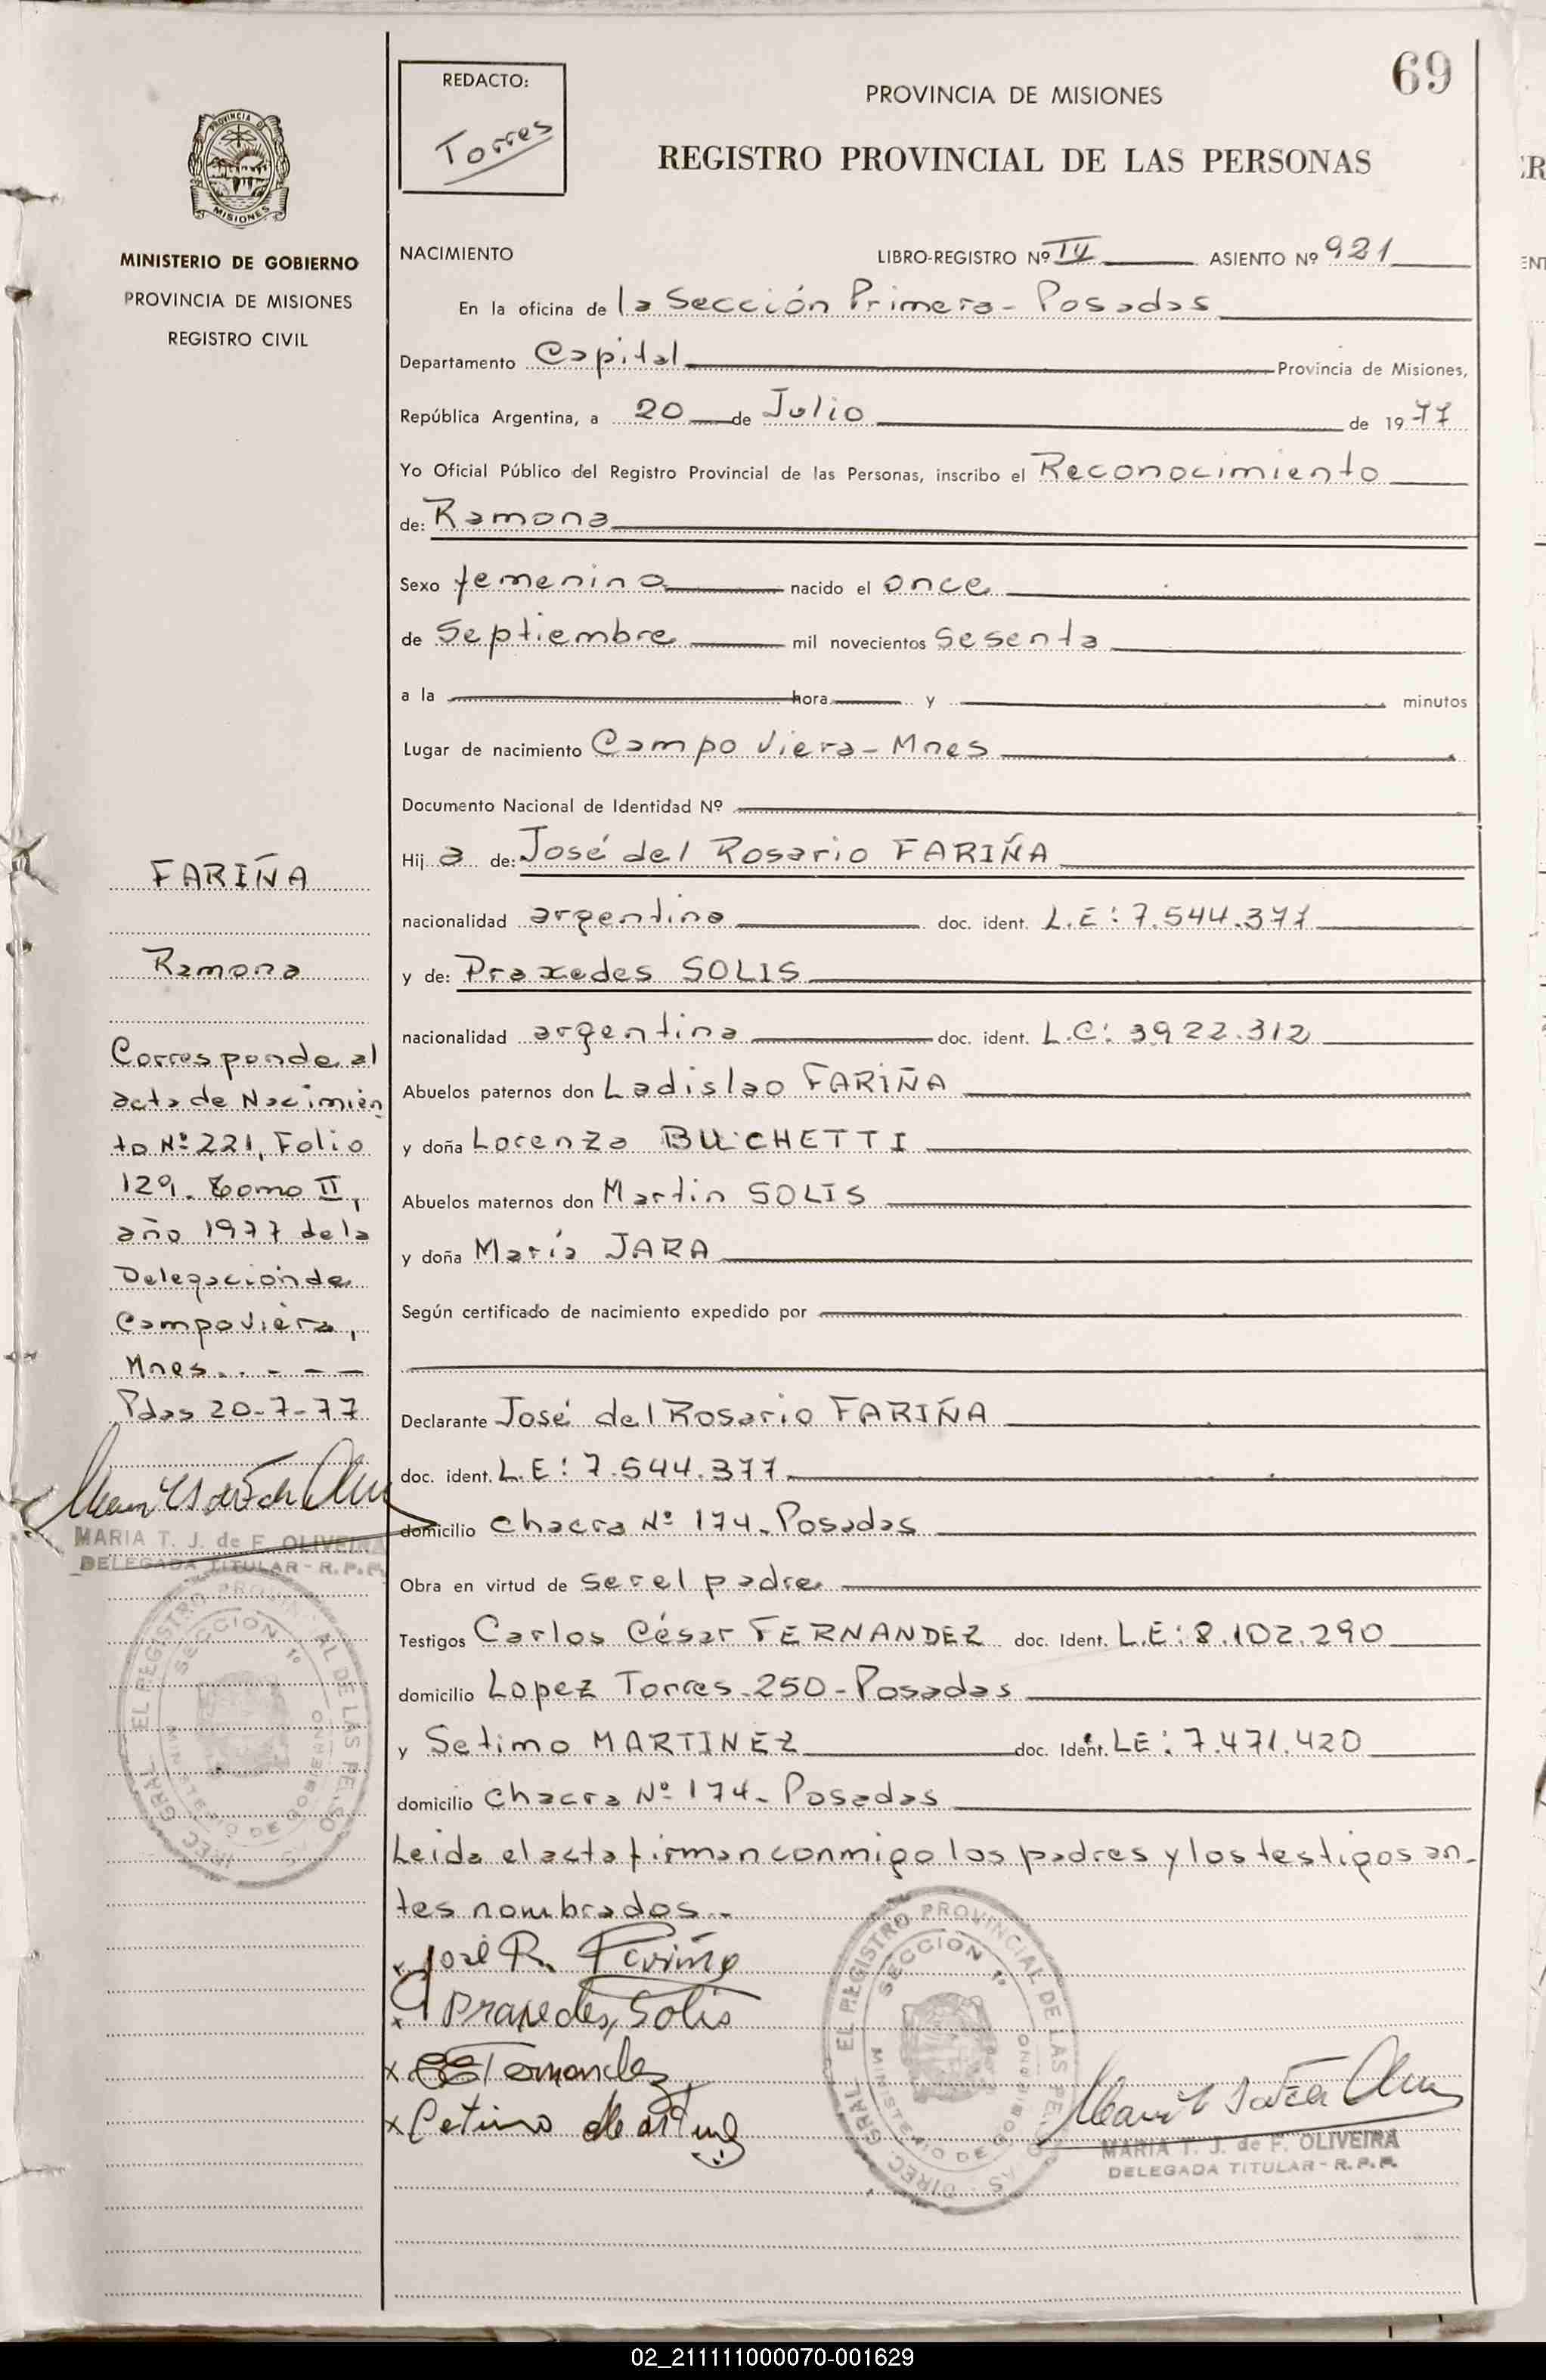 69
REDACTO:
Torres
PROVINCIA DE MISIONES
REGISTRO PROVINCIAL DE LAS PERSONAS
PROVINCIA DE
MISIONES
MINISTERIO DE GOBIERNO
PROVINCIA DE MISIONES
REGISTRO CIVIL
NACIMIENTO LIBRO-REGISTRO Nº IV ASIENTO Nº 921
En la oficina de la Sección Primera - Posadas
Departamento Capital Provincia de Misiones,
República Argentina, a 20 de Julio de 1977
Yo Oficial Público del Registro Provincial de las Personas, inscribo el Reconocimiento
de: Ramona
Sexo femenino nacido el once
de Septiembre mil novecientos sesenta
a la hora y minutos
Lugar de nacimiento Campo Viera - Mnes
Documento Nacional de Identidad Nº
Hija de: José del Rosario FARIÑA
nacionalidad argentino doc. ident. L.E: 7.544.377
y de: Praxedes SOLIS
nacionalidad argentina doc. ident. L.C: 3922.312
Abuelos paternos don Ladislao FARIÑA
y doña Lorenza BUCHETTI
Abuelos maternos don Martin SOLIS
y doña María JARA
Según certificado de nacimiento expedido por
Declarante José del Rosario FARIÑA
doc. ident. L.E: 7.544.377
domicilio chacra Nº 174. Posadas
Obra en virtud de ser el padre
Testigos Carlos César FERNANDEZ doc. Ident. L.E: 8.102.290
domicilio Lopez Torres - 250 - Posadas
y Setimo MARTINEZ doc. Ident. LE: 7.471.420
domicilio chacra Nº 174 - Posadas
Leida el acta firman conmigo los padres y los testigos an-
tes nombrados.-
x José R. Fariña
x Praxedes Solis
x CCFernandez
x Cetimo Martinez
FARIÑA
Ramona
Corresponde al
acta de Nacimien
to Nº 221, Folio
129. Tomo II,
año 1977 de la
Delegación de
Campo Viera,
Mnes. . - - -
Pdas 20-7-77
MARIA T. J. de F. OLIVEIRA
DELEGADA TITULAR - R.P.P.
DIREC. GRAL. DEL REGISTRO PROVINCIAL DE LAS PERSONAS
SECCION 1º
MINISTERIO DE GOBIERNO
DIREC. GRAL. DEL REGISTRO PROVINCIAL DE LAS PERSONAS
SECCION 1º
MINISTERIO DE GOBIERNO
MARIA T. J. de F. OLIVEIRA
DELEGADA TITULAR - R.P.P.
02_211111000070-001629